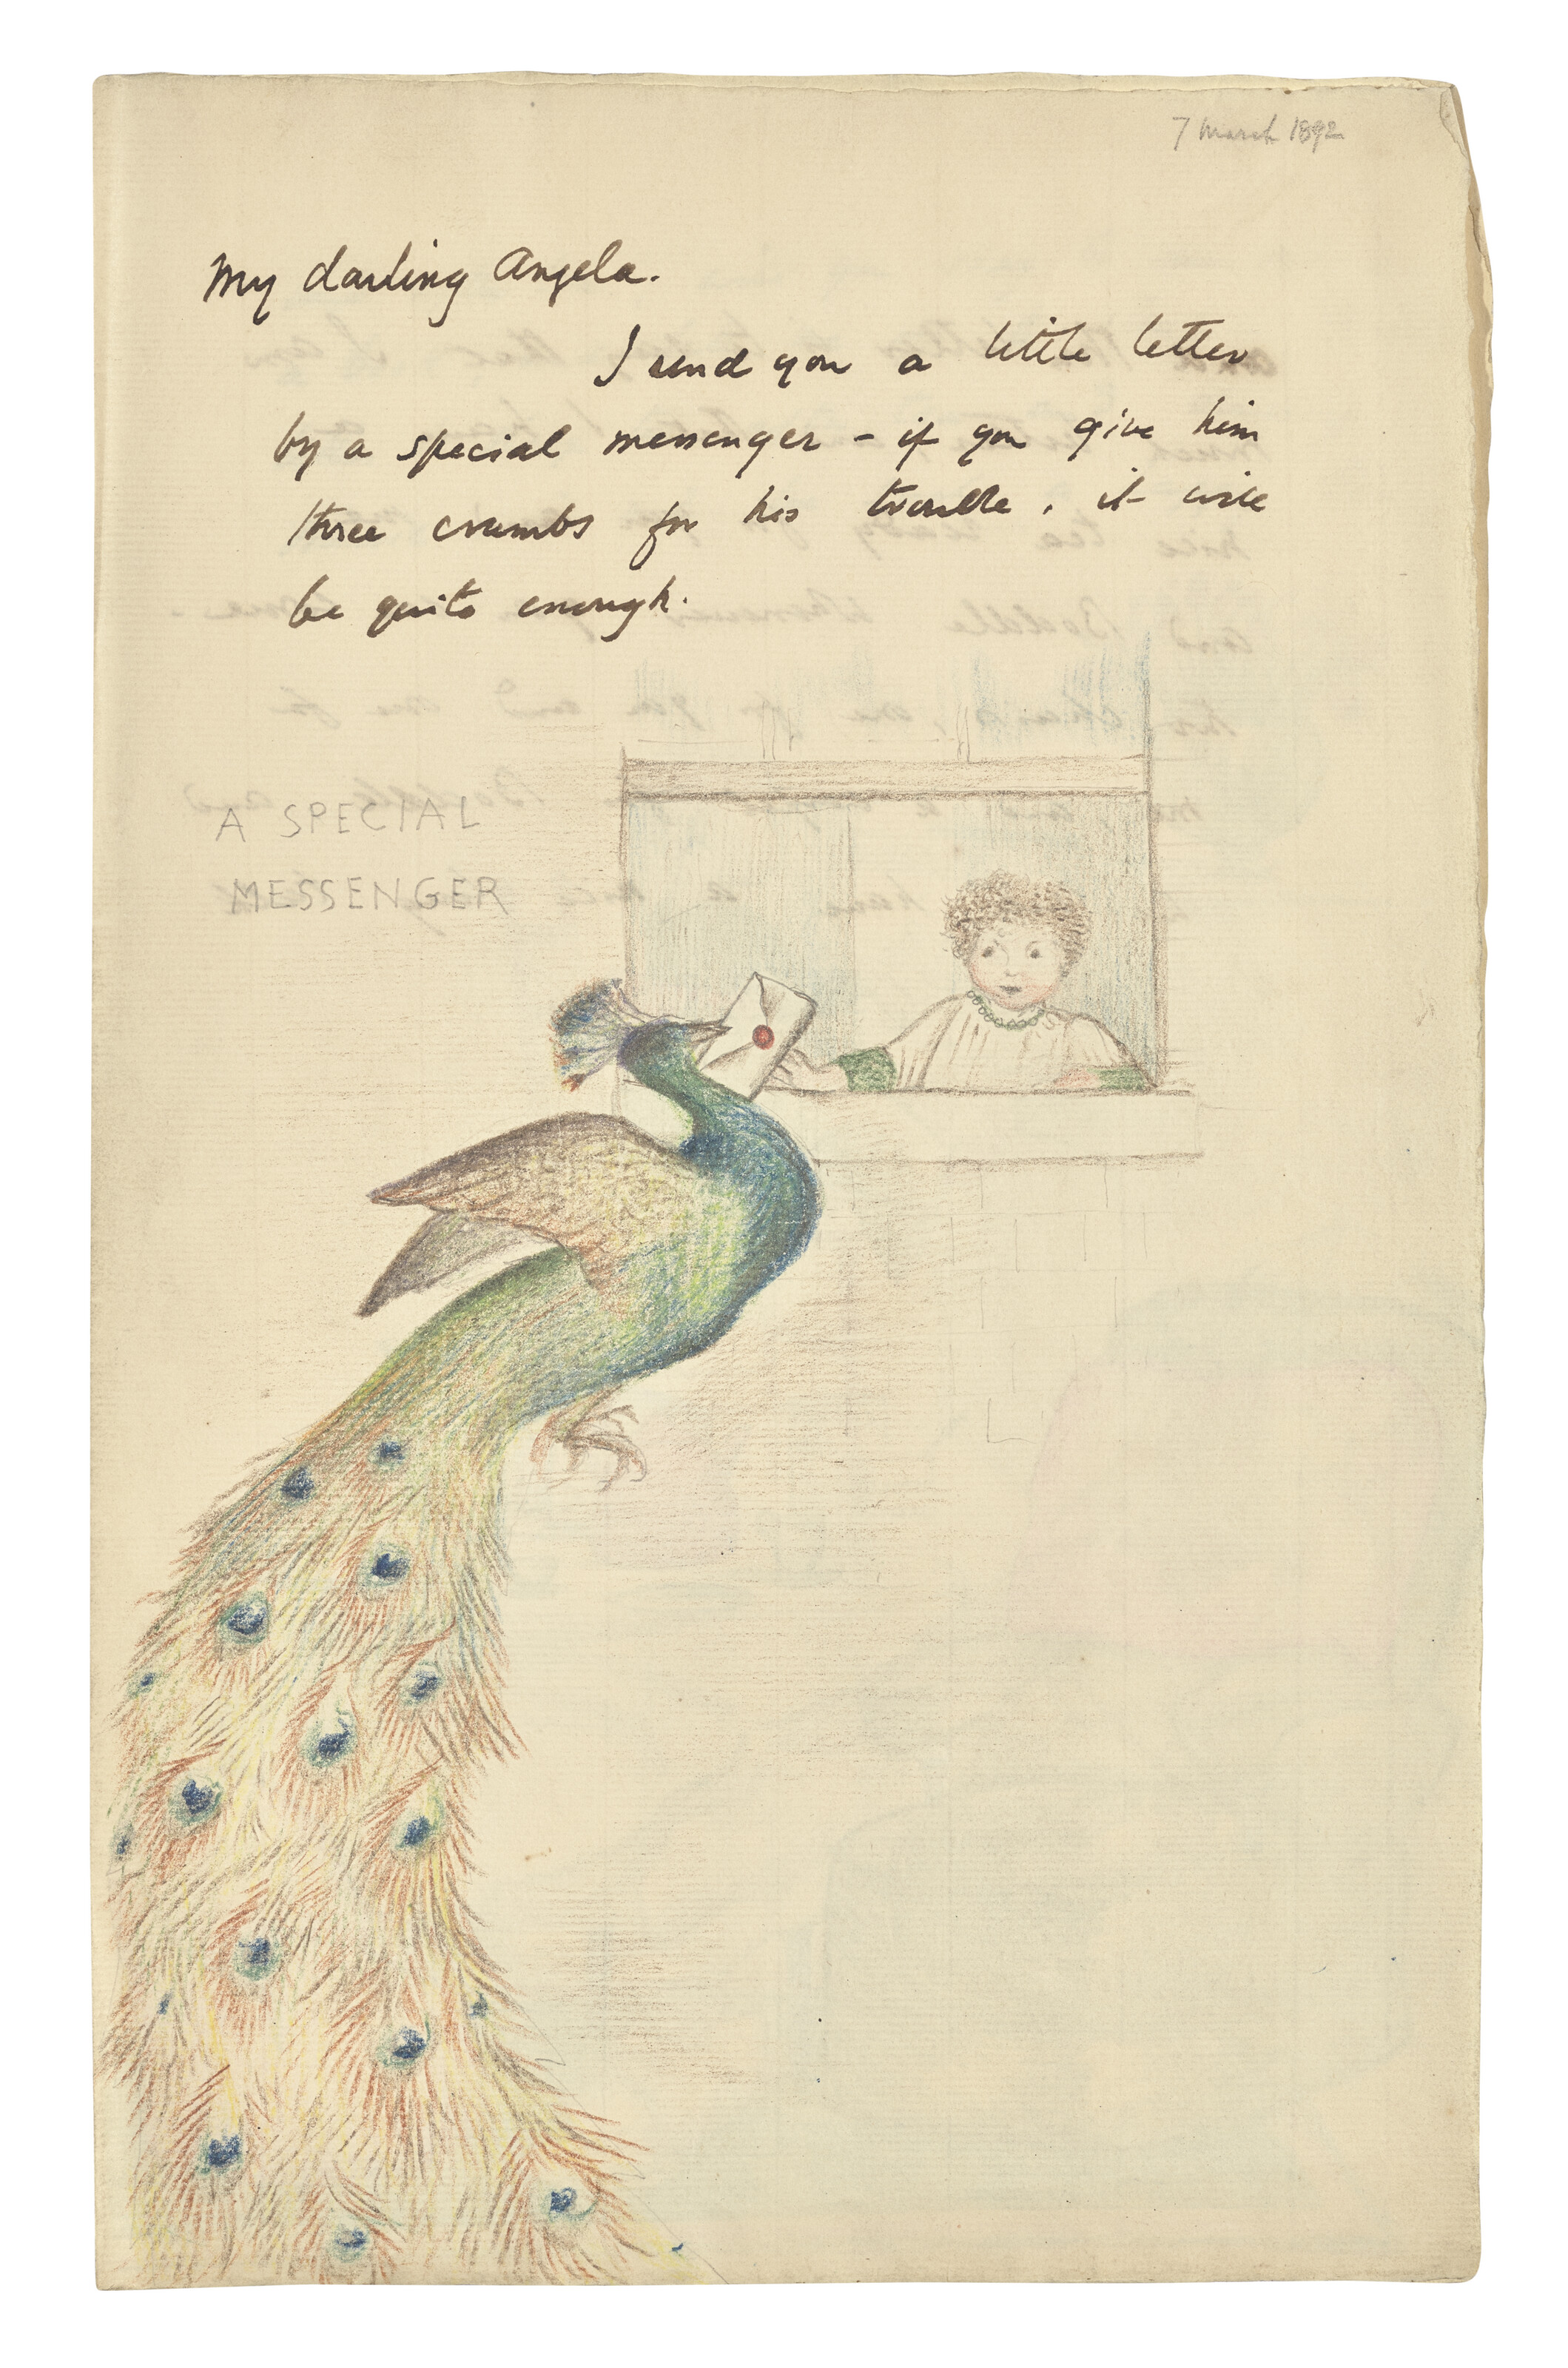 7 March 1892
My darling Angela.
I send you a little letter
by a special messenger – if you give him
three crumbs for his trouble, it will
be quite enough.
A SPECIAL
MESSENGER